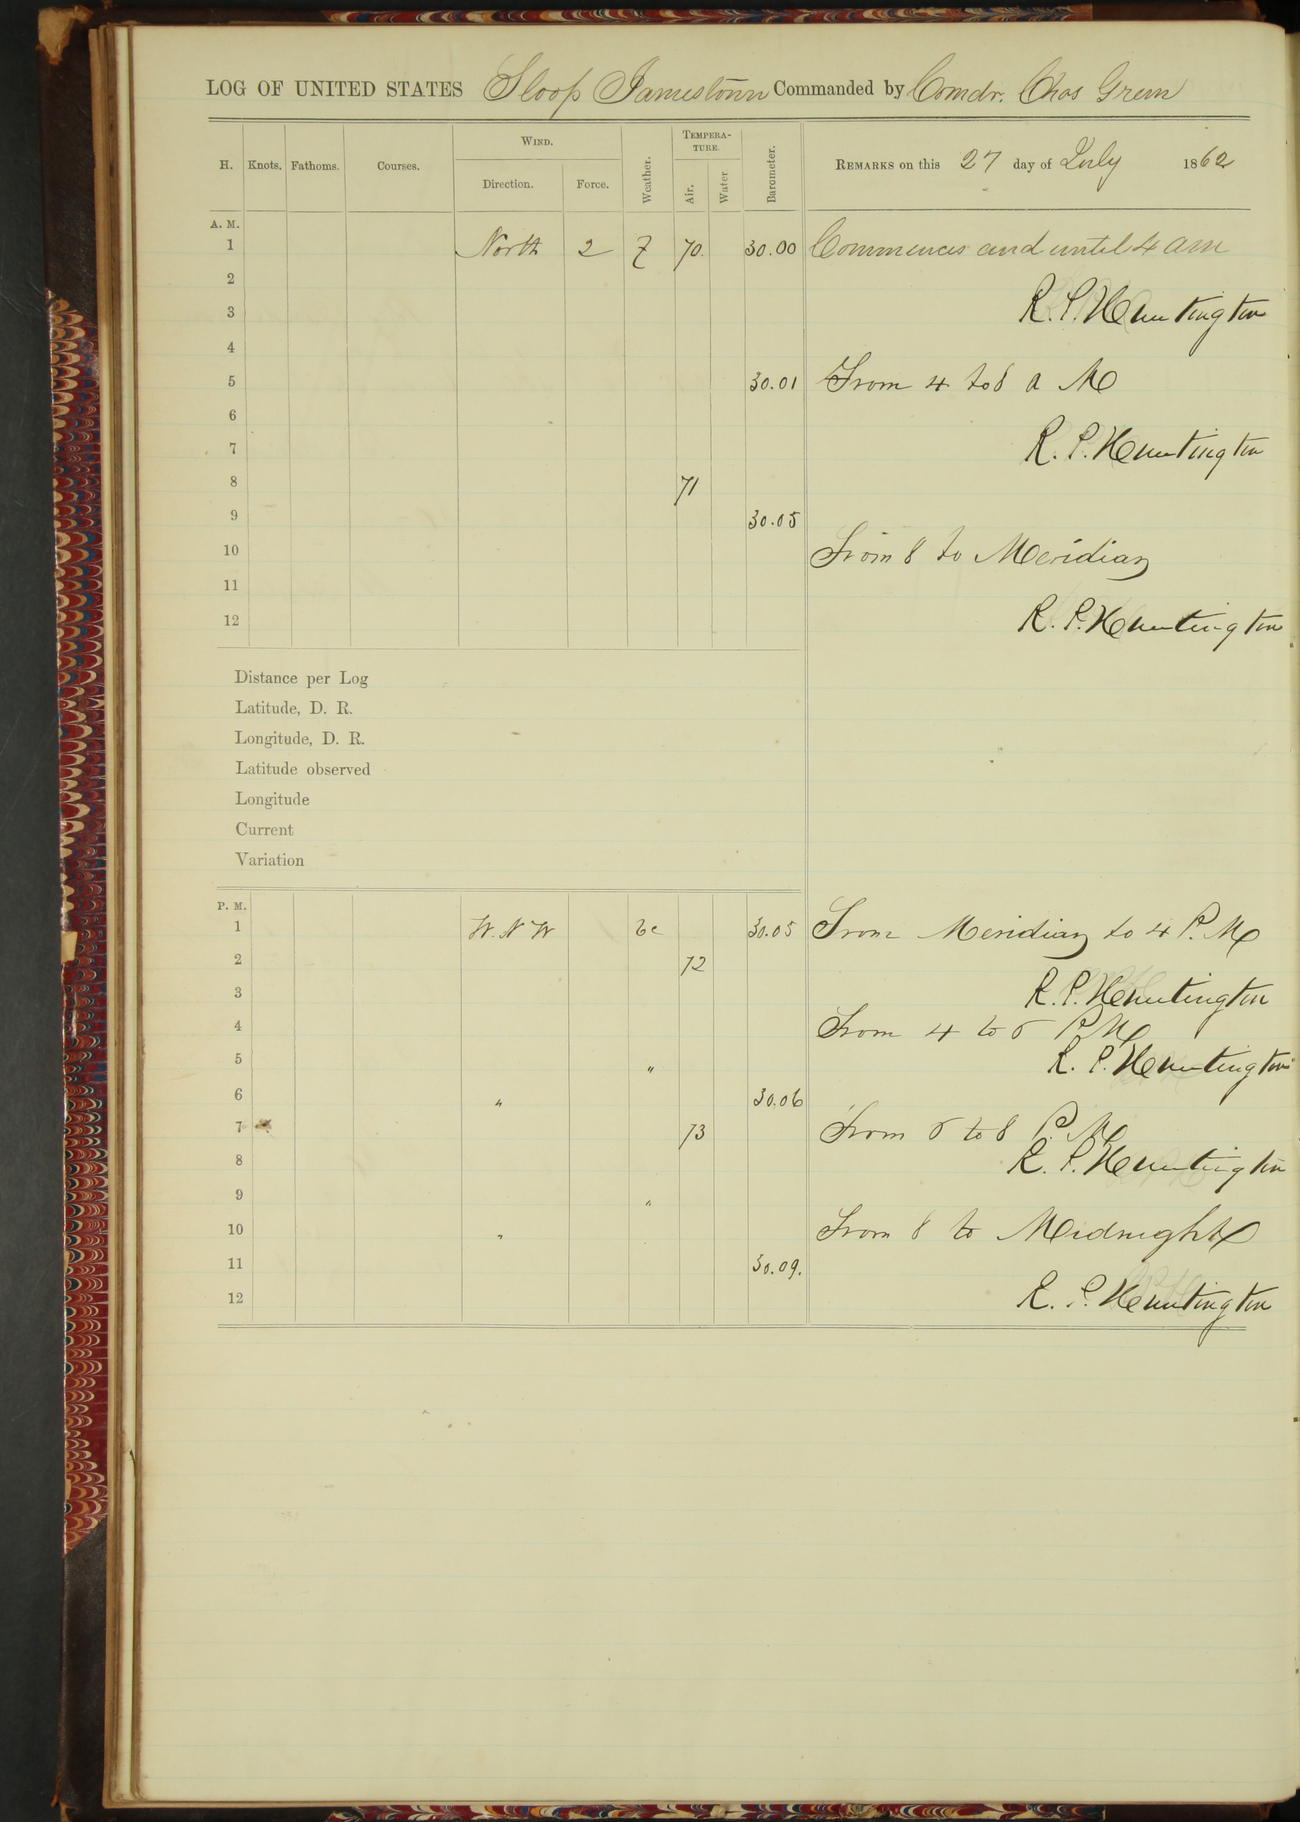 LOG OF UNITED STATES Sloop Jamestown Commanded by Comdr. Chas Green
H. Knots. Fathoms. Courses. WIND. Direction. Force. Weather. TEMPERATURE. Air. Water Barometer. REMARKS on this 27 day of July 1862
A. M.
1 North 2 70. 30.00 Commences and until 4 am
2
3 R. P. Huntington
4
5 30.01 From 4 to 8 a M
6
7 R. P. Huntington
8 71
9 30.05
10 From 8 to Meridian
11
12 R. P. Huntington
Distance per Log
Latitude, D. R.
Longitude, D. R.
Latitude observed
Longitude
Current
Variation
P. M.
1 W. N W bc 30.05 From Meridian to 4 P. M
2 72
3 R. P. Huntington
4 From 4 to 6 P M
5 " R. P. Huntington
6 " 30.06
7 73 From 6 to 8 P. M
8 R. P. Huntington
9 "
10 " From 8 to Midnight
11 30.09.
12 R. P. Huntington